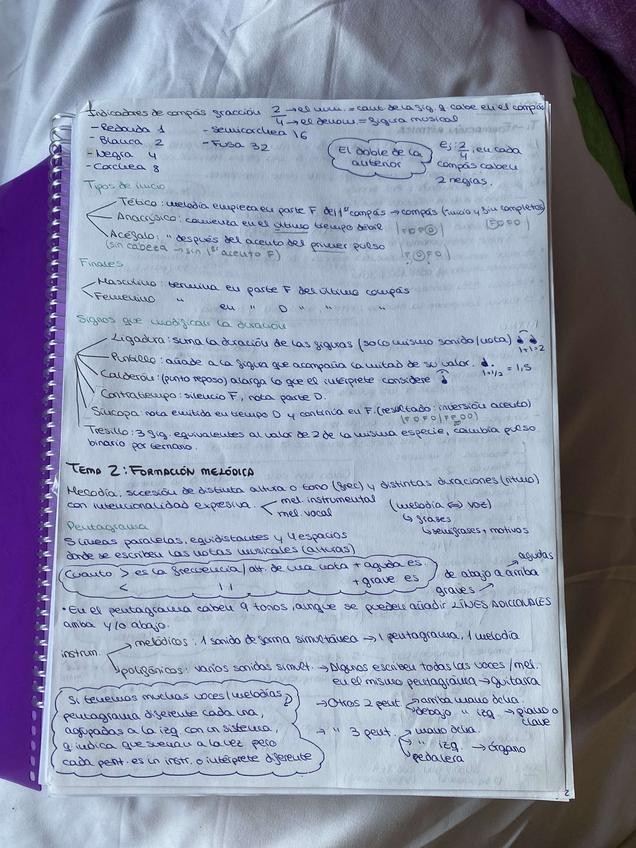 Indicadores de compás fracción 2/4 → el num. = cant. de la fig. q cabe en el compás
→ el denom = figura musical
- Redonda 1
- Blanca 2
- Negra 4
- Corchea 8
- Semicorchea 16
- Fusa 32
El doble de la anterior
ej: 2/4, en cada
compás caben
2 negras.
Tipos de inicio
Tético: melodía empieza en parte F. del 1º compás → compás (inicio y fin completos)
Anacrúsico: comienza en el último tiempo débil
Acéfalo: " después del acento del primer pulso
(sin cabeza → sin 1er acento F)
Finales
Masculino: termina en parte F del último compás
Femenino " en " D " " "
Signos que modifican la duración
Ligadura: suma la duración de las figuras (solo mismo sonido/nota)
1+1=2
Puntillo: añade a la figura que acompaña la mitad de su valor.
1+1/2 = 1,5
Calderón: (punto reposo) alarga lo que el intérprete considere
Contratiempo: silencio F, nota parte D.
Síncopa: nota emitida en tiempo D y continúa en F. (resultado: inversión acento)
Tresillo: 3 fig. equivalentes al valor de 2 de la misma especie, cambia pulso
binario por ternario.
TEMA 2: FORMACIÓN MELÓDICA
Melodía: sucesión de distinta altura o tono (frec) y distintas duraciones (ritmo)
con intencionalidad expresiva.
mel. instrumental
mel. vocal
(melodía ⇔ voz)
↳ frases
↳ semifrases + motivos
Pentagrama
5 líneas paralelas, equidistantes y 4 espacios
donde se escriben las notas musicales (alturas)
Cuanto > es la frecuencia/alt. de una nota + aguda es.
< " + grave es
de abajo a arriba
agudas
graves
• En el pentagrama caben 9 tonos aunque se pueden añadir LINES ADICIONALES
arriba y/o abajo.
instrum.
melódicos: 1 sonido de forma simultánea → 1 pentagrama, 1 melodía
polifónicos: varios sonidos simult. → Algunos escriben todas las voces/mel.
en el mismo pentagrama → Guitarra
→ Otros 2 pent. arriba mano dcha.
debajo " izq. → piano o
clave
→ " 3 pent. mano dcha.
" izq. → órgano
pedalera
Si tenemos muchas voces/melodías,
pentagrama diferente cada una,
agrupadas a la izq. con un sistema,
q indica que suenan a la vez pero
cada pent. es un instr. o intérprete diferente
2